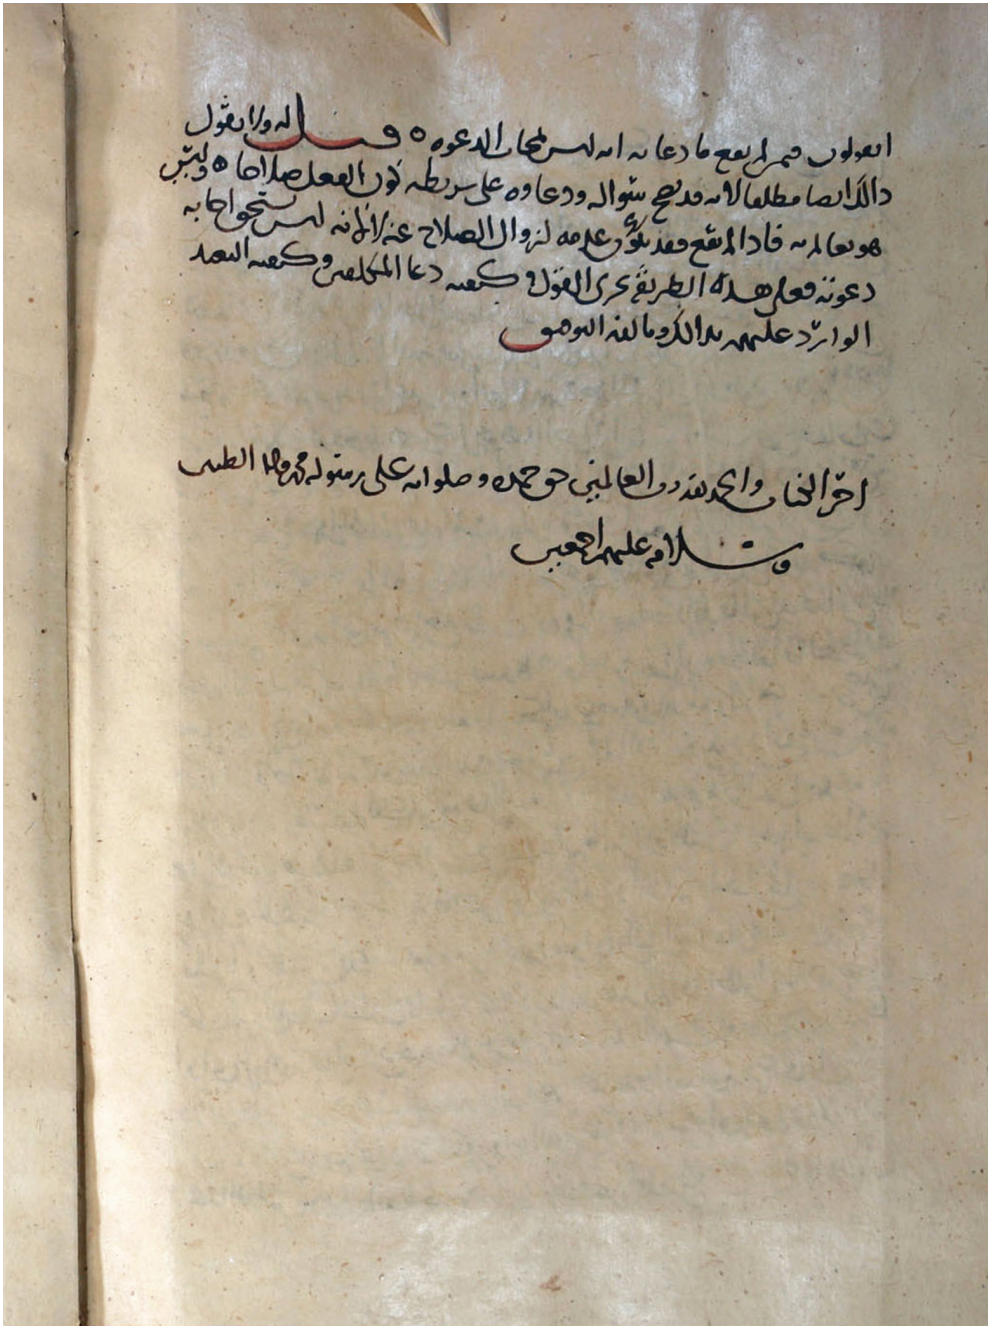 اتقولون فيمن لم يقع ما دعا به انه ليس بمجاب الدعوه ٥ قيل له ولا نقول
ذالك ايضا مطلقا لانه قد يصح سواله ودعاوه على شريطه كون الفعل صلاحا ٥ وليس
هو بعالم به فاذا لم يقع فقد يكون عدمه لزوال الصلاح عنه لا لانه ليس يستحق اجابه
دعوته فعلى هذه الطريقه يجرى القول فى كيفيه دعا المكلفين وكيفيه التعبد
الوارد عليهم بذالك وبالله التوفيق
اخر الكتاب والحمد لله رب العالمين حق حمده وصلواته على رسوله محمد واله الطيبين
وسلامه عليهم اجمعين